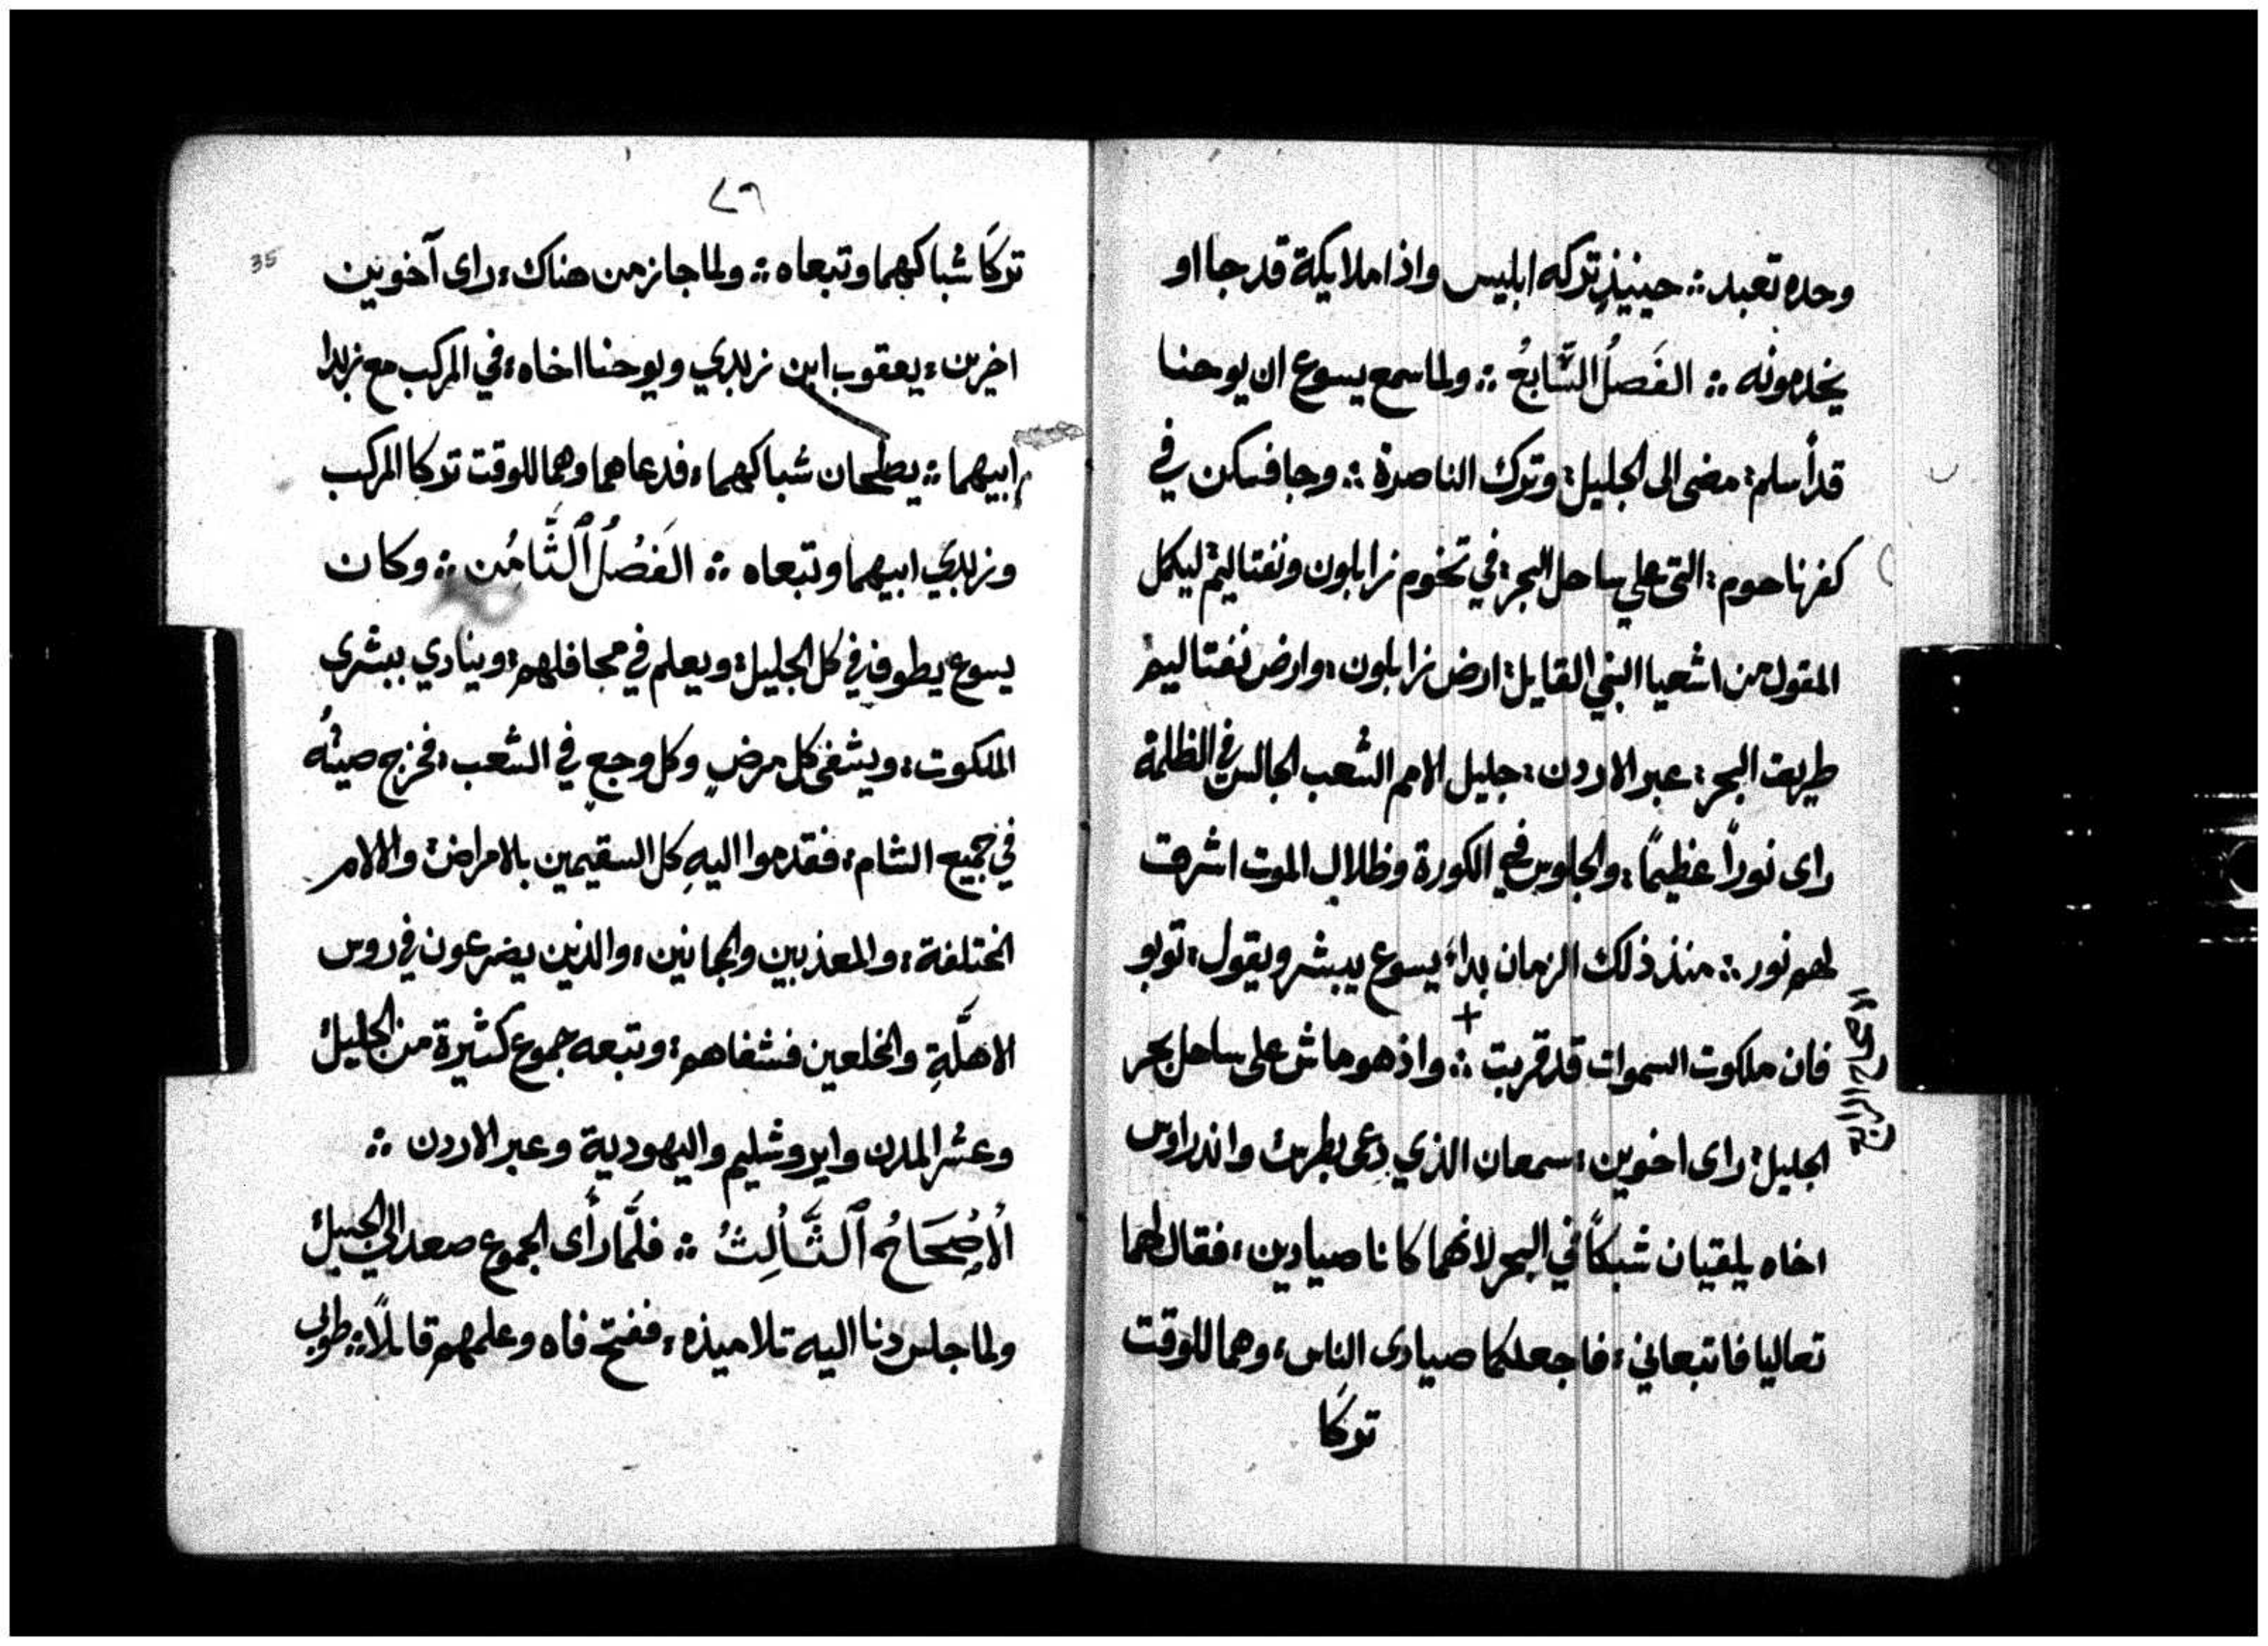 وحده تعبد ؞ حينيذٍ تركه ابليس واذا ملايكة قد جااو
يخدمونه ؞ الفَصلُ السَّابعُ ؞ ولما سمع يسوع ان يوحنا
قد أسلم: مضى الى الجليل: وترك الناصرة ؞ وجا فسكن في
كفرناحوم: التى علي ساحل البحر: في تخوم زابلون ونفتاليم: ليكمل
المقول من اشعيا النبي القايل: ارض زابلون: وارض نفتاليم
طريق البحر: عبر الاردن: جليل الامم الشعب الجالس في الظلمة
راى نوراً عظيماً: والجلوس في الكورة وظلال الموت اشرقت
لهم نور ؞ منذ ذلك الزمان بداء يسوع يبشر ويقول: توبو
فان ملكوت السموات قد قربت ؞ + واذ هو ماش على ساحل بحر
الاصحاح الرابع
الجليل: راى اخوين: سمعان الذي دعى بطرس واندراوس
اخاه يلقيان شبكاً في البحر لانهما كانا صيادين: فقال لهما
تعاليا فاتبعاني: فاجعلكما صيادى الناس: وهما للوقت
تركَا
٢٦
35
تركَا شباكهما وتبعاه ؞ ولما جاز من هناك: راى آخوين
اخرين: يعقوب ابن زبدي ويوحنا اخاه: في المركب مع زبدا
ابيهما ؞ يصلحان شباكهما: فدعاهما وهما للوقت تركا المركب
وزبدي ابيهما وتبعاه ؞ الفَصْلُ ٱلثَّامُن ؞ وكان
يسوع يطوف في كل الجليل: ويعلم في مجافلهم: وينادي ببشرى
الملكوت: ويشفى كل مرضٍ وكل وجعٍ في الشعب: فخرج صيتُه
في جميع الشام: فقدموا اليهِ كل السقيمين بالامراض والالام
المختلفة: والمعذبين والمجانين: والذين يضرعون في روس
الاهلَّةِ والمخلعين فشفاهم: وتبعه جموع كثيرة من الجليل
وعشر المدن وايروشليم واليهودية وعبر الاردن ؞
ألاصْحَاحُ ٱلثَّالِثُ ؞ فلمَّا رأى الجموع صعد الي الجبل
ولما جلس دنا اليه تلاميذه: ففتح فاه وعلمهم قايلاً: طوبى